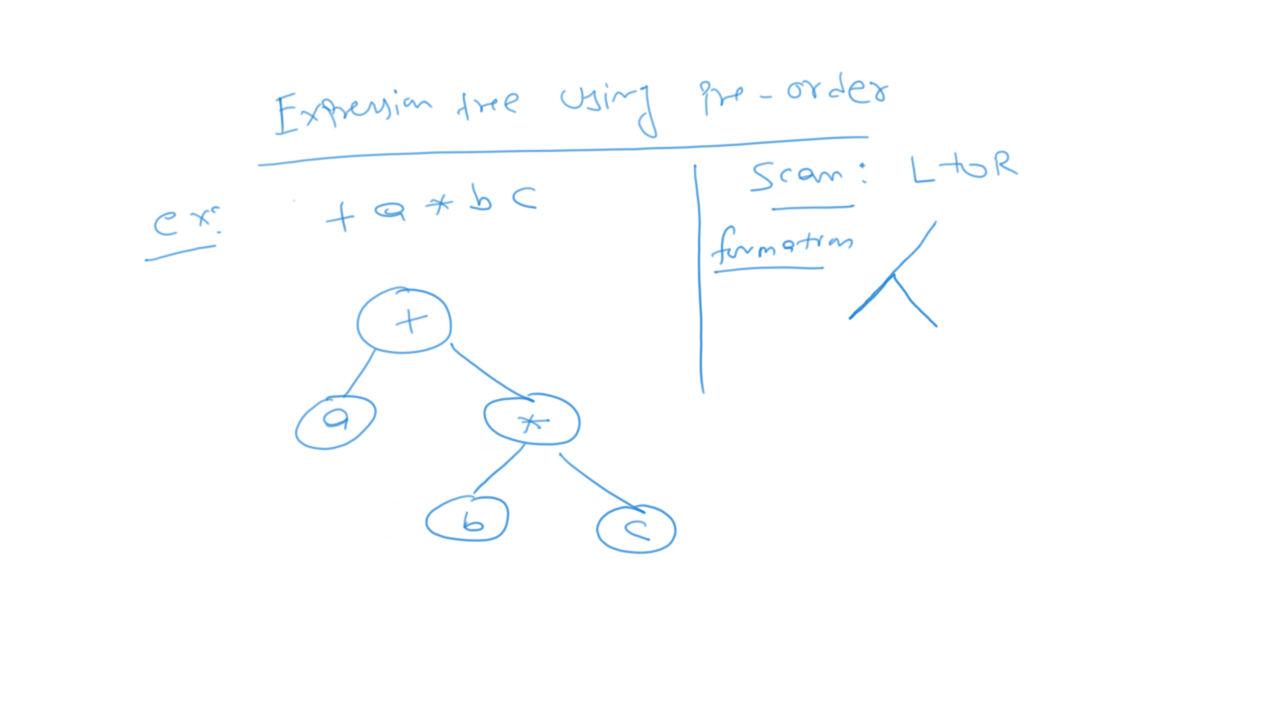 Expression tree using pre-order
ex: + a * b c
Scan: L to R
formation
+
a *
b c